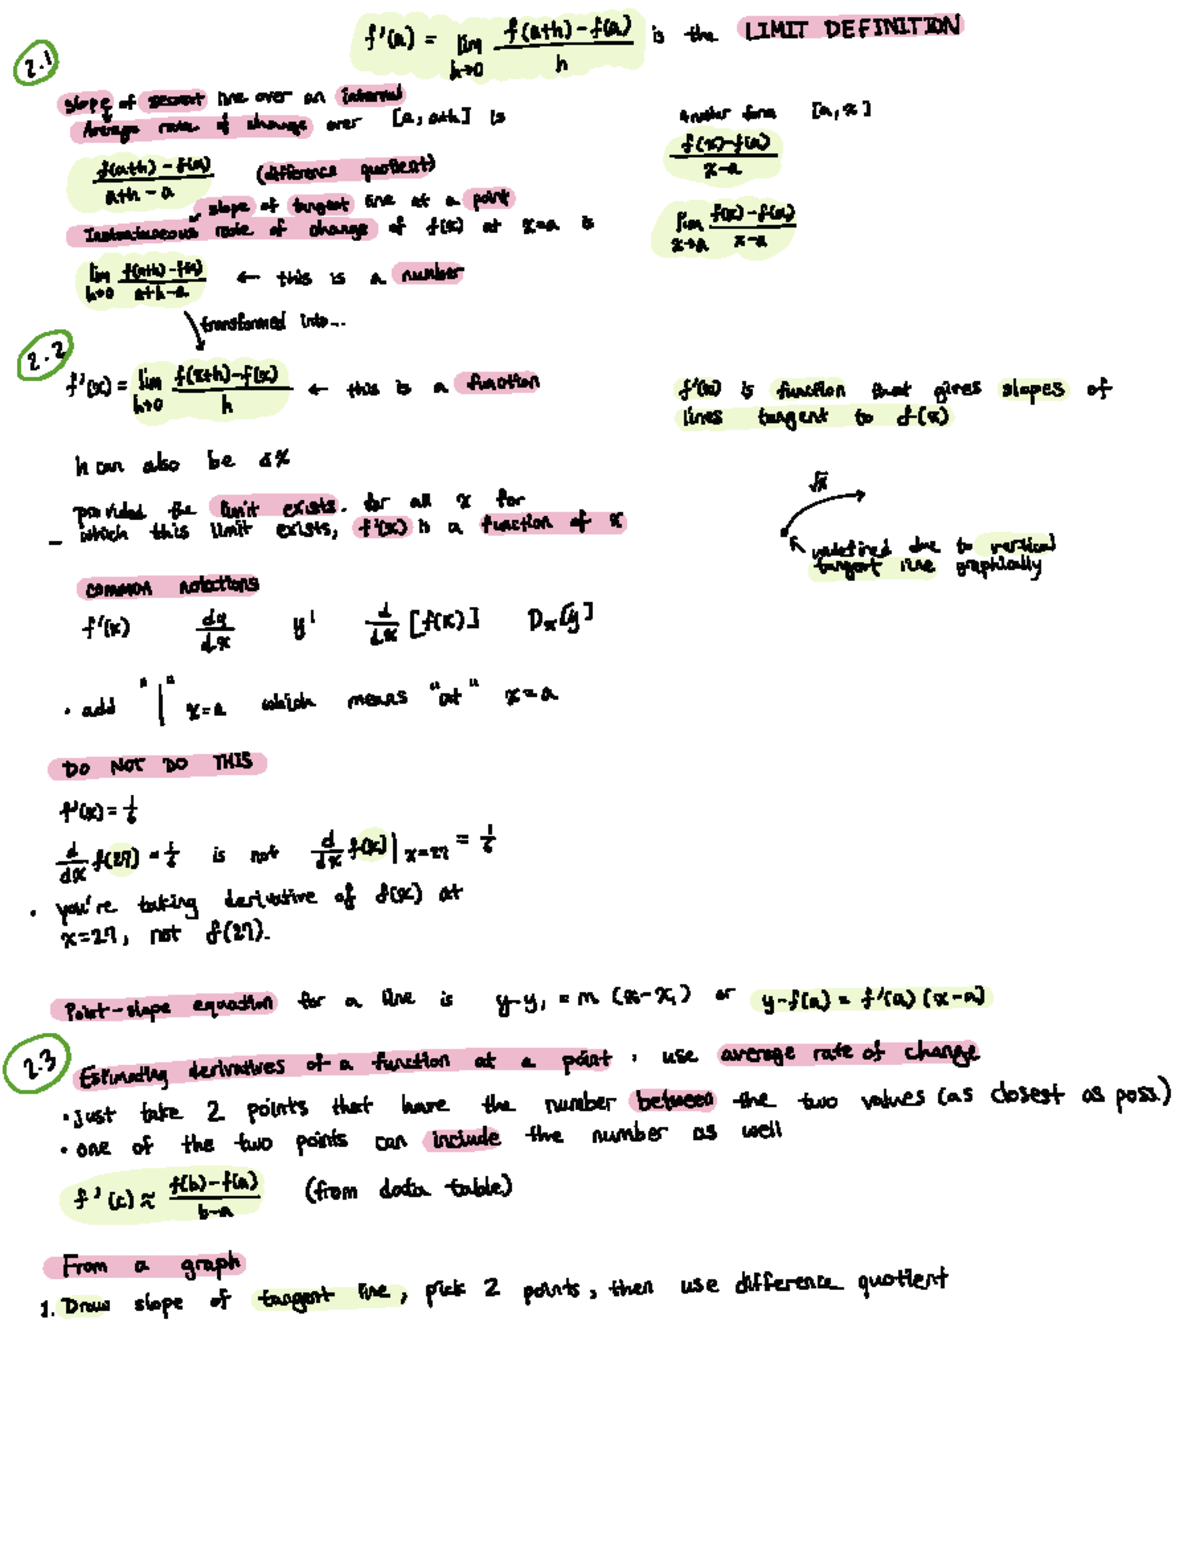 f'(a) = lim h→0 f(a+h) - f(a) / h is the LIMIT DEFINITION
2.1
slope of secant line over an interval
Average rate of change over [a, a+h] is
f(a+h) - f(a) / a+h - a (difference quotient)
slope of tangent line at a point
Instantaneous rate of change of f(x) at x=a is
lim h→0 f(a+h) - f(a) / a+h-a ← this is a number
Another form [a, x]
f(x) - f(a) / x - a
lim x→a f(x) - f(a) / x - a
transformed into...
2.2
f'(x) = lim h→0 f(x+h) - f(x) / h ← this is a function
f'(x) is function that gives slopes of
lines tangent to f(x)
h can also be Δx
provided the limit exists. for all x for
- which this limit exists, f'(x) is a function of x
√x
undefined due to vertical
tangent line graphically
common notations
f'(x) dy/dx y' d/dx [f(x)] Dx[y]
• add "|" x=a which means "at" x=a
DO NOT DO THIS
f'(x) = 1/6
d/dx f(27) = 1/6 is not d/dx f(x)| x=27 = 1/6
• you're taking derivative of f(x) at
x=27, not f(27).
Point-slope equation for a line is y-y₁ = m (x-x₁) or y-f(a) = f'(a) (x-a)
2.3
Estimating derivatives of a function at a point : use average rate of change
• just take 2 points that have the number between the two values (as closest as poss.)
• one of the two points can include the number as well
f'(c) ≈ f(b) - f(a) / b-a (from data table)
From a graph
1. Draw slope of tangent line, pick 2 points, then use difference quotient